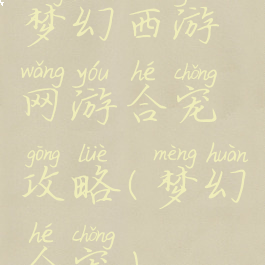 梦幻西游
wǎng yóu hé chǒng
网游合宠
gōng lüè mèng huàn
攻略(梦幻
hé chǒng
合宠)